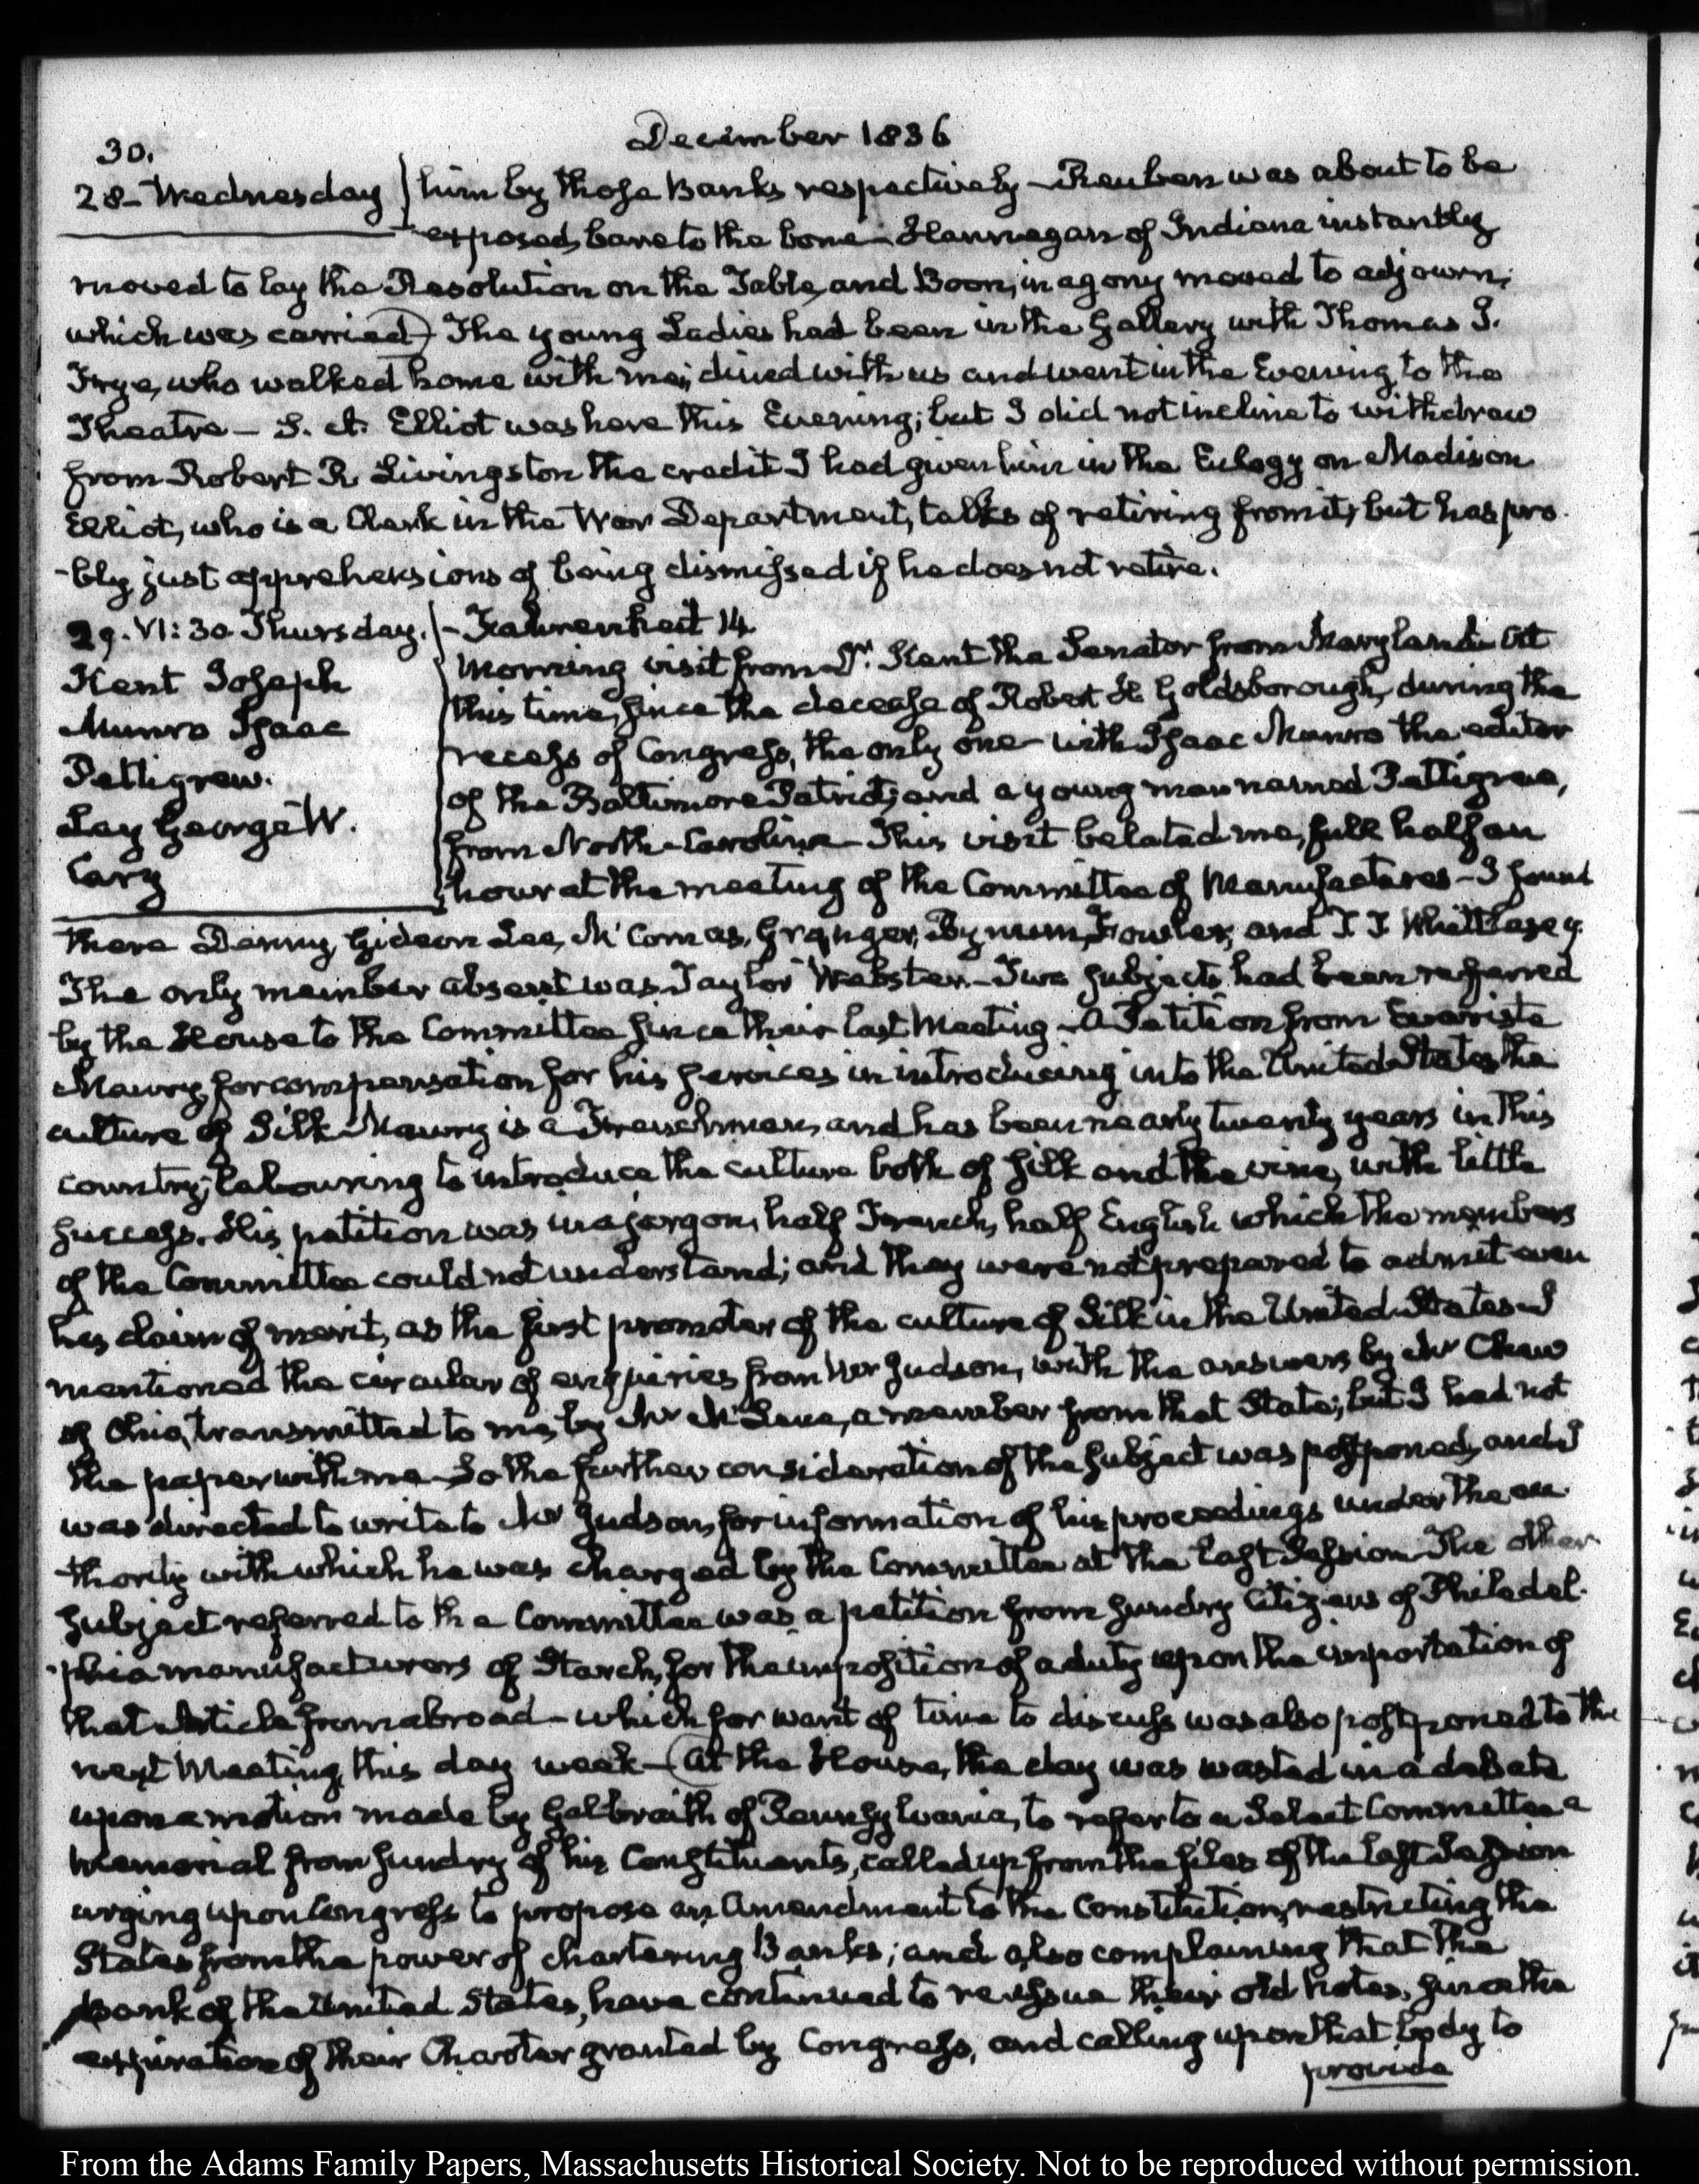 30.
December 1836
28. Wednesday
him by those Banks respectively – Reuben was about to be
exposed, bare to the bone – Hannegan of Indiana instantly
moved to lay the Resolution on the Table, and Boon, in agony moved to adjourn,
which was carried) The young Ladies had been in the Gallery with Thomas I.
Frye, who walked home with me; dined with us and went in the Evening, to the
Theatre – J. A. Elliot was here this Evening; but I did not incline to withdraw
from Robert R. Livingston the credit I had given him in the Eulogy on Madison
Elliot, who is a Clerk in the War Department, talks of retiring from it, but has pro-
-bly just apprehensions of being dismissed if he does not retire.
29. VI: 30. Thursday.
Kent Joseph
Munro Isaac
Pettigrew.
Lay George W.
Cary
– Fahrenheit 14
Morning visit from Dr. Kent the Senator from Maryland – At
this time, since the decease of Robert H Goldsborough, during the
recess of Congress, the only one – with Isaac Munro the editor
of the Baltimore Patriot, and a young man named Pettigrew,
from North-Carolina – This visit belated me, full half an
hour at the meeting of the Committee of Manufactures – I found
there Denny, Gideon Lee, McComas, Granger, Bynum, Fowler, and T T Whittlesey.
The only member absent was Taylor Webster – Two subjects had been referred
by the House to the Committee since their last Meeting – A Petition from Evariste
Maury, for compensation for his services in introducing into the United States the
culture of Silk – Maury is a Frenchman, and has been nearly twenty years in this
country; labouring to introduce the culture both of silk and the vine, with little
success. His petition was in a jargon, half French, half English which the members
of the Committee could not understand; and they were not prepared to admit even
his claim of merit, as the first promoter of the culture of Silk in the United States – I
mentioned the circular of enquiries from Mr Judson, with the answers by Mr Chew
of Ohio, transmitted to me, by Mr McLene, a member from that State; but I had not
the paper with me – So the further consideration of the subject was postponed, and I
was directed to write to Mr Judson, for information of his proceedings under the au
thority with which he was charged by the Committee at the last Session – The other
subject referred to the Committee was a petition from sundry Citizens of Philadel-
-phia manufacturers of Starch, for the imposition of a duty upon the importation of
that Article from abroad – which for want of time to discuss was also postponed to the
next Meeting, this day week – (At the House, the day was wasted in a debate
upon a motion made by Galbraith of Pennsylvania, to refer to a Select Committee a
Memorial from sundry of his Constituents, called up from the files of the last Session
urging upon Congress to propose an Amendment to the Constitution, restricting the
States from the power of chartering Banks; and also complaining that the
Bank of the United States, have continued to reissue their old notes, since the
expiration of their Charter granted by Congress, and calling upon that body to
provide
From the Adams Family Papers, Massachusetts Historical Society. Not to be reproduced without permission.